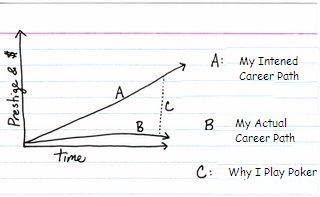 Prestige & $
Time
A
B
C
A: My Intened
Career Path
B My Actual
Career Path
C: Why I Play Poker